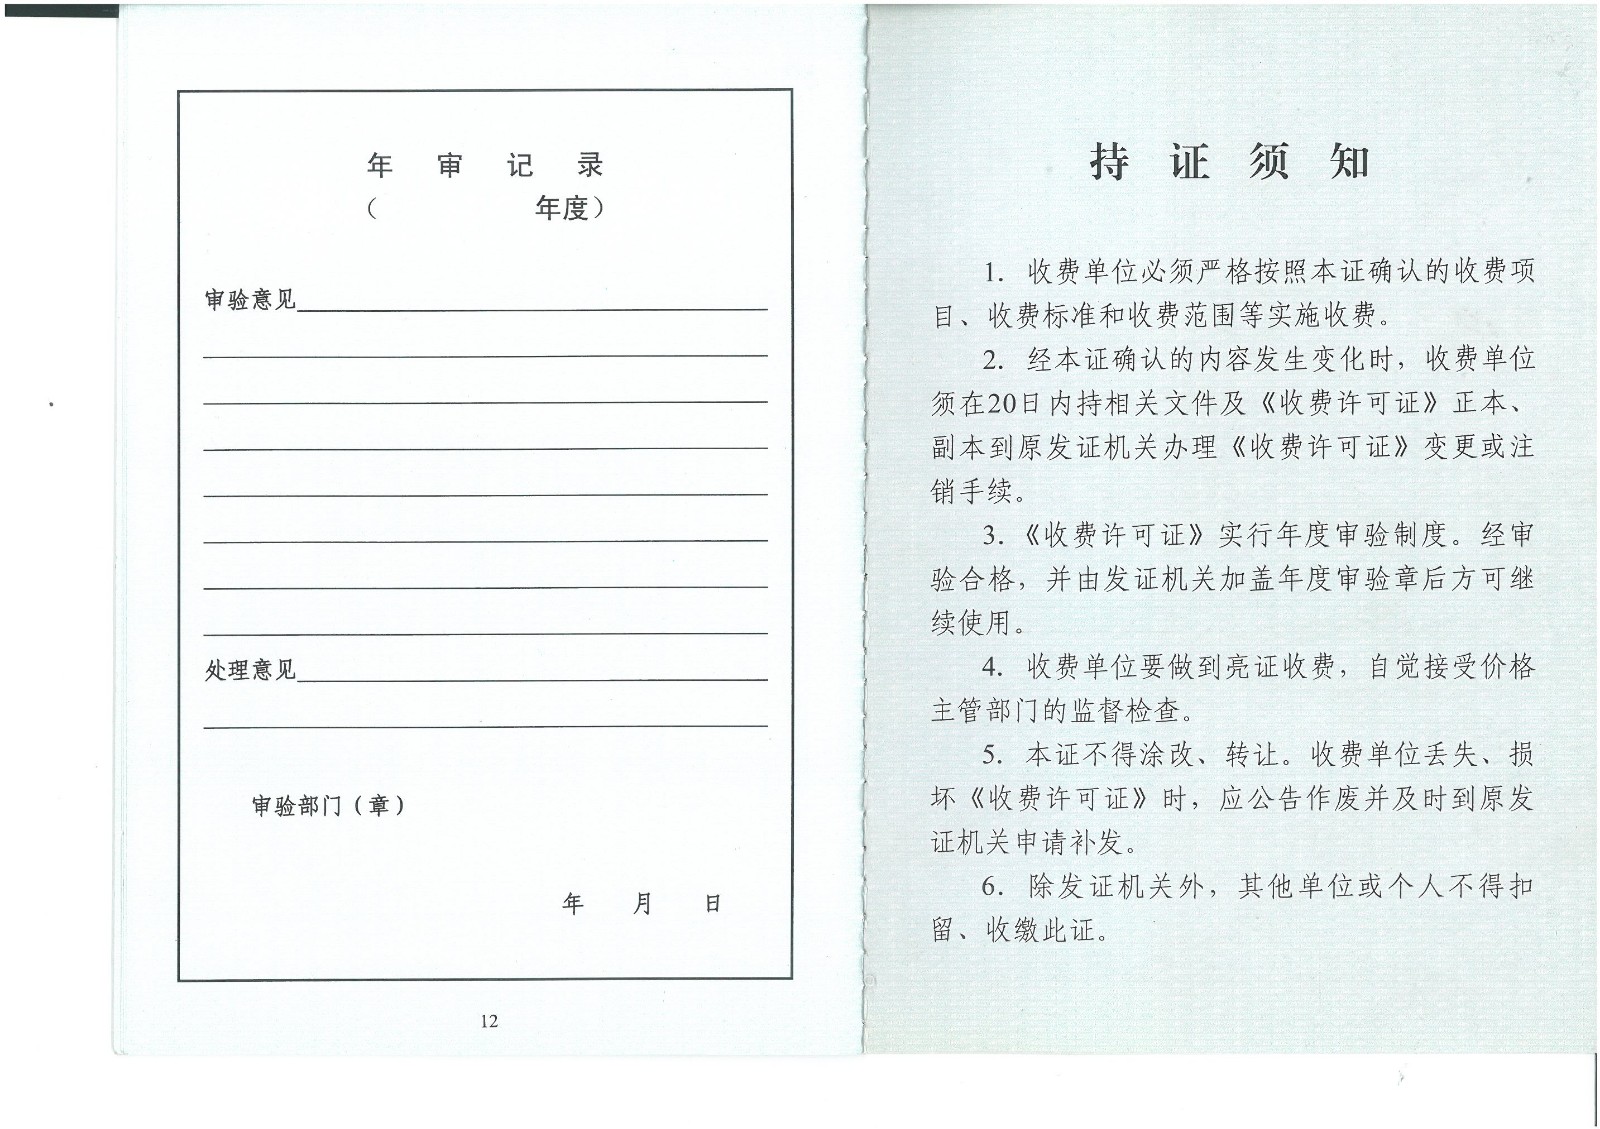 年 审 记 录
（ 年度）
审验意见
处理意见
审验部门（章）
年 月 日
12
持 证 须 知
1. 收费单位必须严格按照本证确认的收费项
目、收费标准和收费范围等实施收费。
2. 经本证确认的内容发生变化时，收费单位
须在20日内持相关文件及《收费许可证》正本、
副本到原发证机关办理《收费许可证》变更或注
销手续。
3.《收费许可证》实行年度审验制度。经审
验合格，并由发证机关加盖年度审验章后方可继
续使用。
4. 收费单位要做到亮证收费，自觉接受价格
主管部门的监督检查。
5. 本证不得涂改、转让。收费单位丢失、损
坏《收费许可证》时，应公告作废并及时到原发
证机关申请补发。
6. 除发证机关外，其他单位或个人不得扣
留、收缴此证。